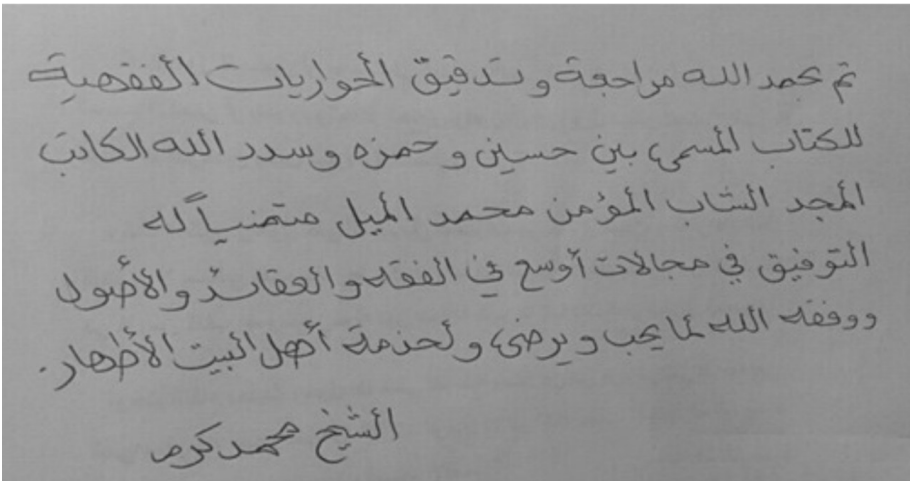 تم بحمد الله مراجعة وتدقيق الحواريات الفقهية
للكتاب المسمى بين حسين وحمزه وسدد الله الكاتب
المجد الشاب المؤمن محمد الميل متمنياً له
التوفيق في مجالات أوسع في الفقه والعقائد والأصول
ووفقه الله لما يحب ويرضى ولخدمة أهل البيت الأطهار.
الشيخ محمد كرم